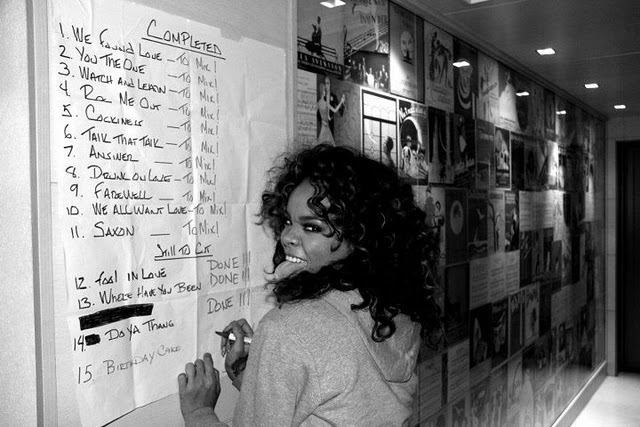 COMPLETED
1. WE FOUND LOVE - TO MIX!
2. YOU THE ONE - TO MIX!
3. WATCH AND LEARN - TO MIX!
4. ROC ME OUT - TO MIX!
5. COCKINESS - TO MIX!
6. TALK THAT TALK - TO MIX!
7. ANSWER - TO MIX!
8. DRUNK ON LOVE - TO MIX!
9. FAREWELL - TO MIX!
10. WE ALL WANT LOVE - TO MIX!
11. SAXON - TO MIX!
Still To Cut
12. fool IN LOVE DONE!!!
13. WHERE HAVE YOU BEEN DONE!!!
14. DO YA THANG DONE!!!
15. BIRTHDAY CAKE